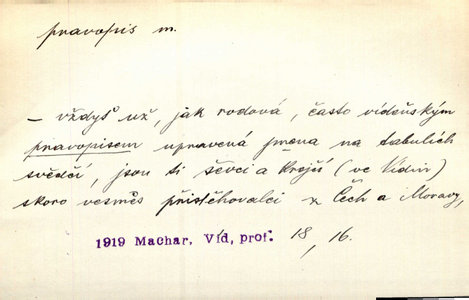 pravopis m.
– vždyť už, jak rodová, často vídeňským
pravopisem upravená jména na tabulích
svědčí, jsou ti ševci a krejčí (ve Vídni)
skoro vesměs přistěhovalci z Čech a Moravy,
1919 Machar. Víd, prof. 18, 16.